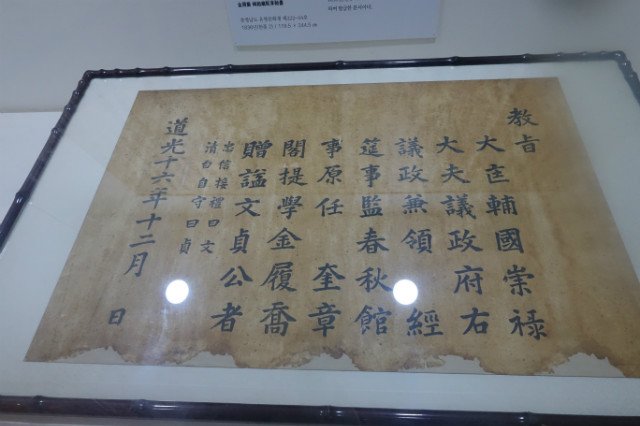 教旨
大匡輔國崇禄
大夫議政府右
議政兼領 經
筵事監春秋館
事原任 奎章
閣提學金履喬
贈諡文貞公者
忠信接禮曰文
清白自守曰貞
道光十六年十二月 日